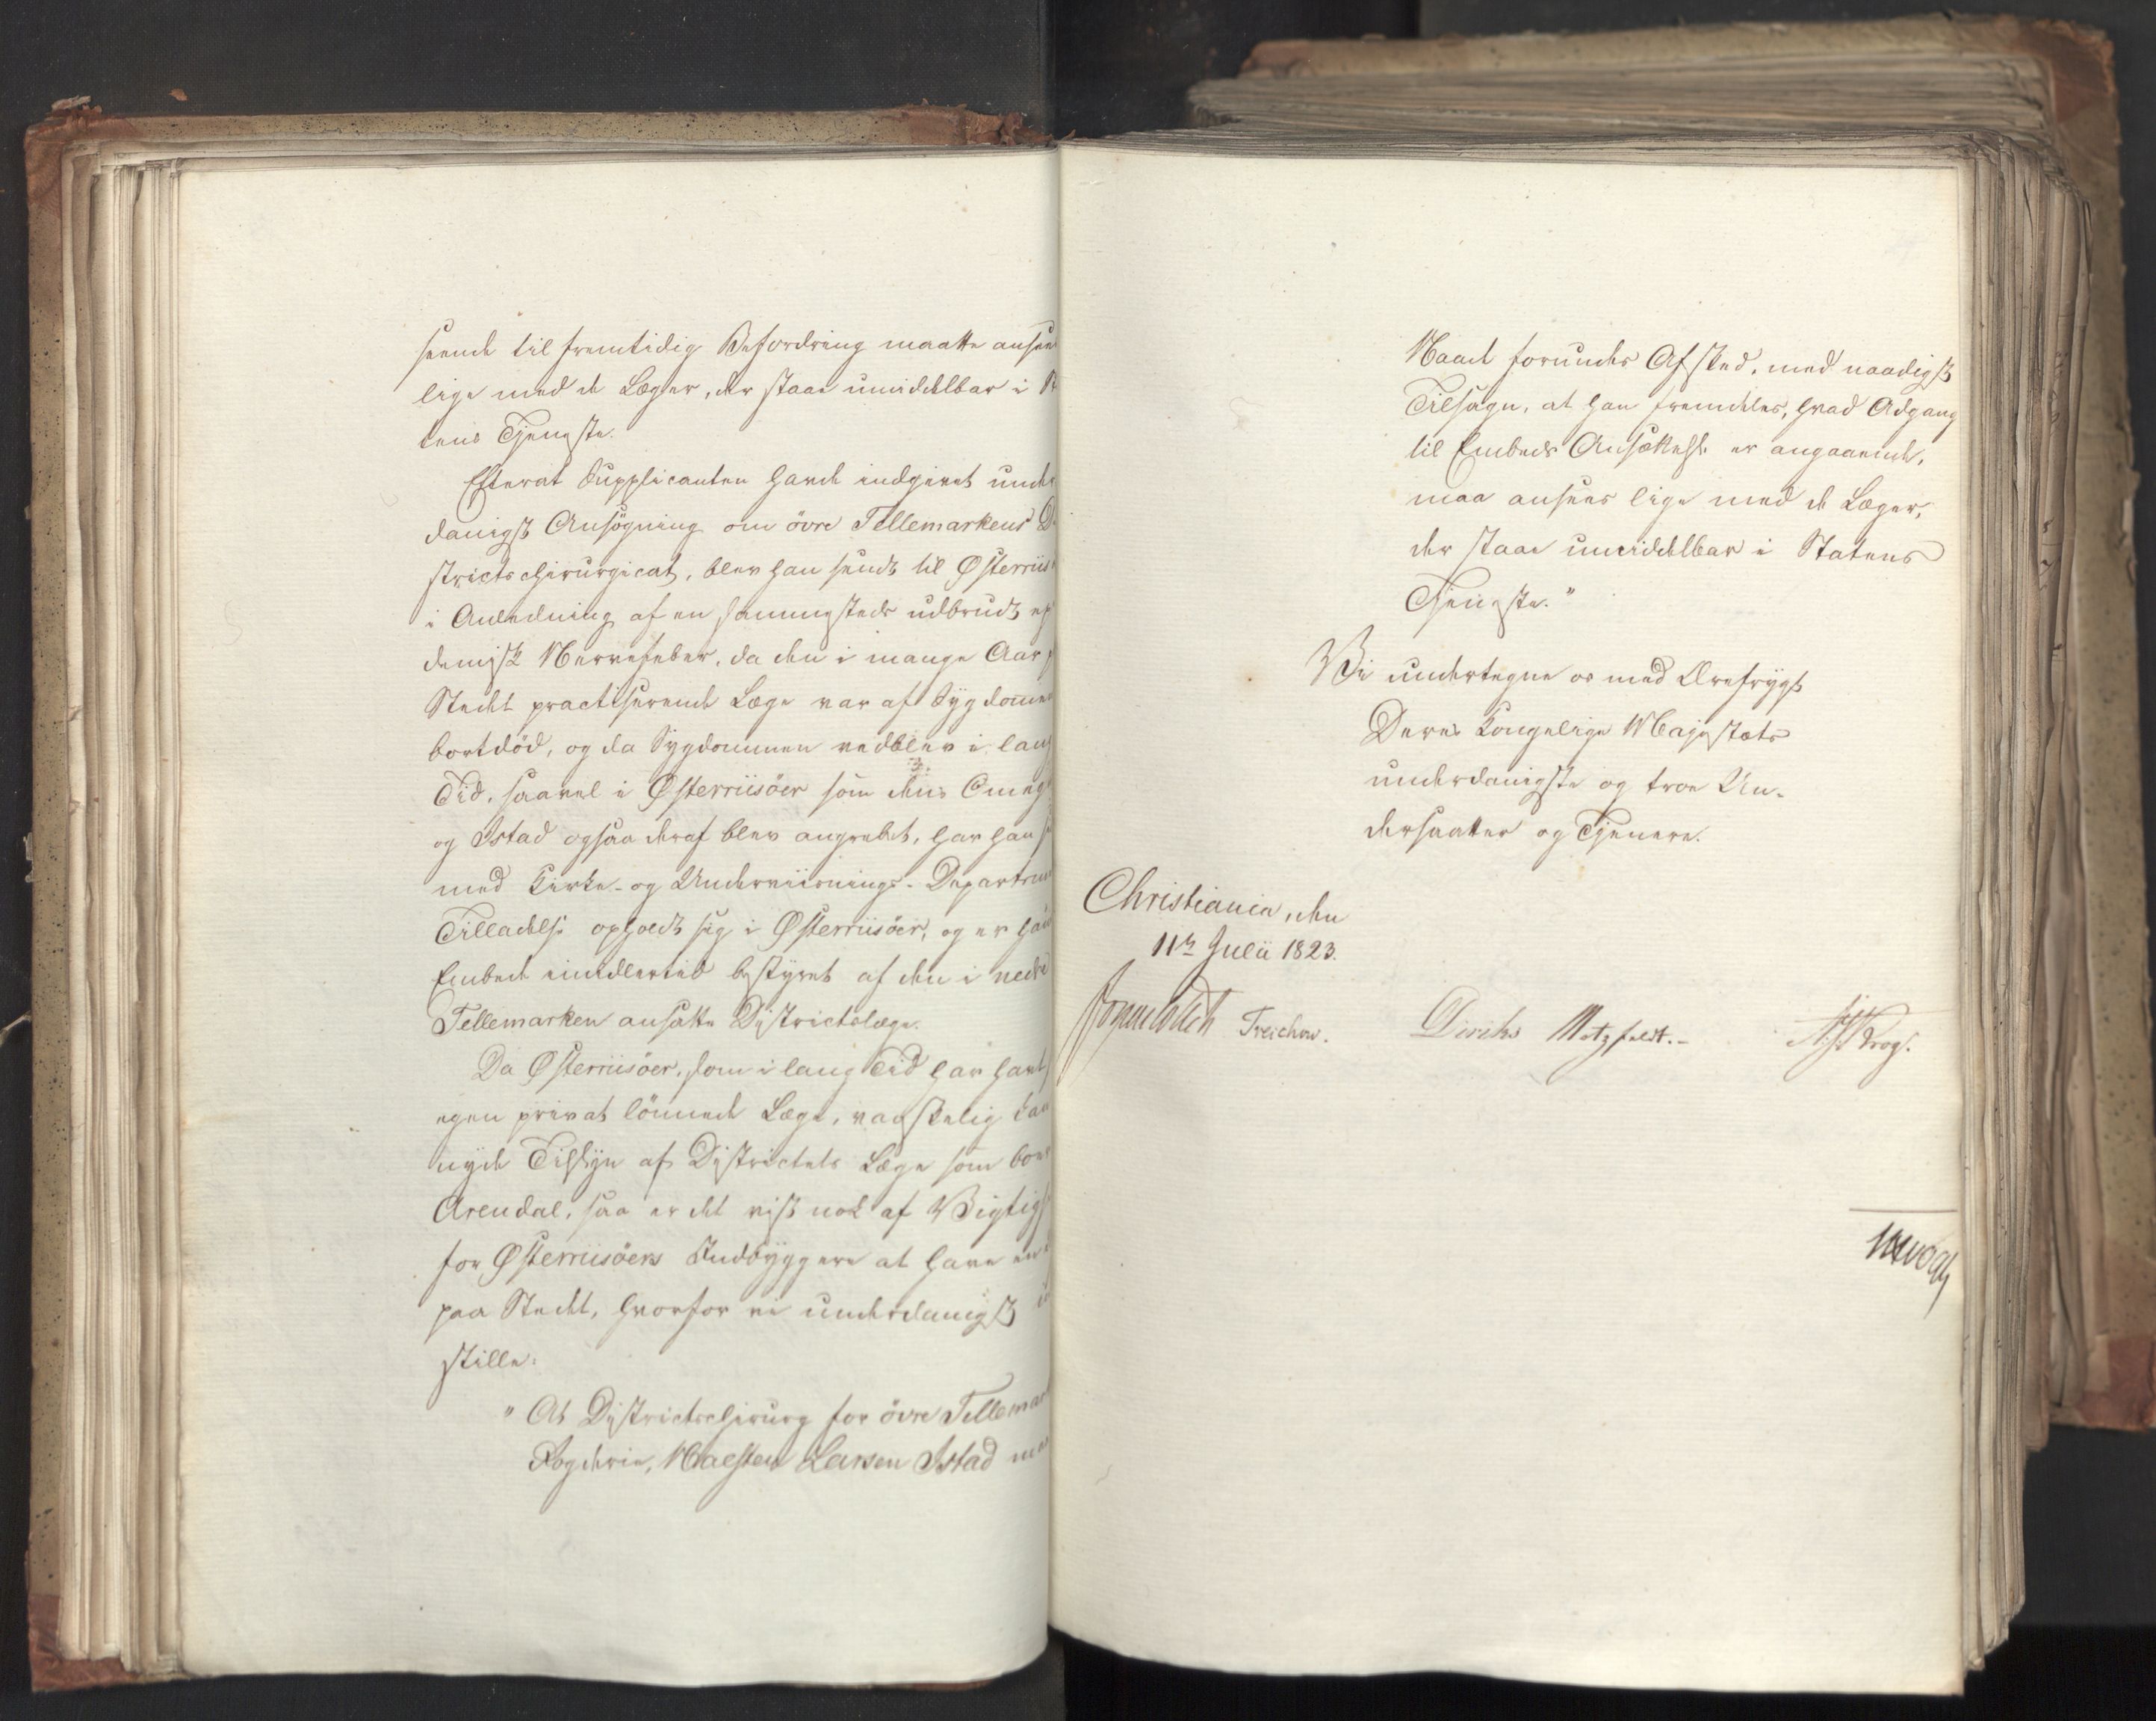 seende til fremtidig Befordring maatte ansees
lige med de Læger, der staae umiddelbar i
tens Tjeneste.
Efterat Supplicanten havde indgivet under
danigst Ansøgning om övre Tellemarkens Di
strictschirurgicat, blev han sendt til Østerriis
i Anledning af en sammesteds udbrudt epi
demisk Nervefeber, da den i mange Aar
Stedet practiserende Læge var af Sygdommen
bortdöd, og da Sygdommen vedblev i lang
Tid, saavel i Østerriisöer som dens Omegn
og Istad ogsaa deraf blev angrebet, har han
med Kirke- og Underviisnings-Departem
Tilladelse opholdt sig i Østerriisöer, og er hans
Embede imidlertid bestyret af den i nedre
Tellemarken ansatte Districtslæge.
Da Østerriisöer, som i lang Tid har havt
egen privat lönnede Læge, vanskelig kan
nyde Tilsyn af Districtets Læge som boer
Arendal, saa er det vist nok af Vigtighed
for Østerriisöers Indbyggere at have en
paa Stedet, hvorfor vi underdanigst ind
stille:
" At Districtschirurg for övre Tellemark
Fogderie, Halsten Larsen Istad maa
Naade forundes Afsked, med naadigst
Tilsagn, at han fremdeles, hvad Adgang
til Embeds Ansættelse er angaaende,
maa ansees lige med de Læger,
der staae umiddelbar i Statens
Tjeneste."
Vi undertegne os med Ærefrygt
Deres Kongelige Majestæts
underdanigste og troe Un-
dersaatter og Tjenere.
Christiania, den
11te Julii 1823.
Sommerhielm Treschow. Diriks Motzfeldt.- Krog.